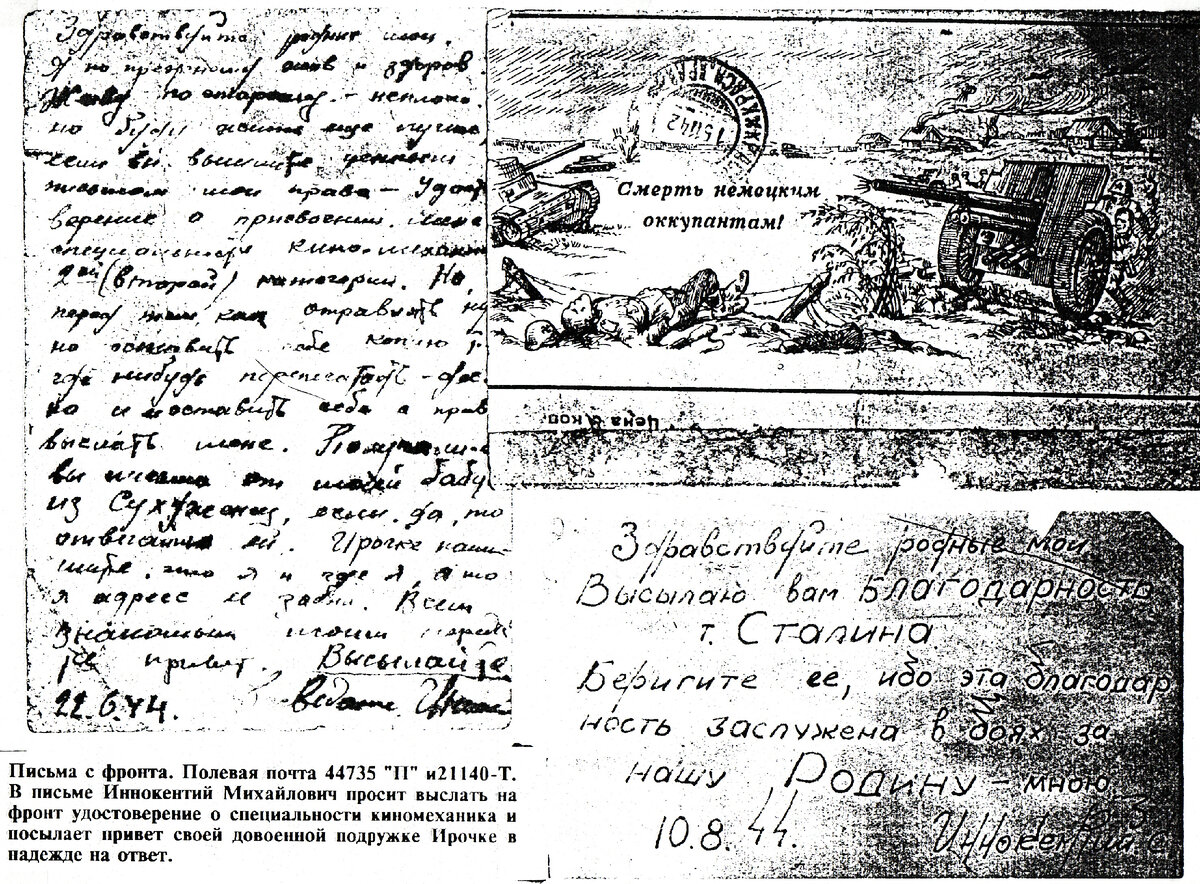 Здравствуйте родные мои.
Я по прежнему жив и здоров.
Живу по старому – неплохо.
но буду жить еще лучше,
если вы вышлите ценным
письмом мои права – Удост
верение о присвоении мне
специальности кино-механика
2ой (второй) категории. Но,
перед тем, как отправить ну
но оставить себе копию
где нибудь перепечатать –
но и оставить себе а прав
выслать мне. Получили
вы письма от моей бабу
из Сухужений, если да, то
отвечайте ей. Ирочке напи
шите, что я и где я, а то
я адрес ее забыл. Всем
знакомым моим
привет. Высылайте
22.6.44.
КРАСН АРМ
15 42
Смерть немецким
оккупантам!
Цена 6 коп.
Здравствуйте родные мои.
Высылаю вам Благодарность
т. Сталина
Беригите ее, ибо эта благодар
ность заслужена в боях за
нашу Родину – мною,
10.8.44. Иннокентий
Письма с фронта. Полевая почта 44735 "П" и21140-Т.
В письме Иннокентий Михайлович просит выслать на
фронт удостоверение о специальности киномеханика и
посылает привет своей довоенной подружке Ирочке в
надежде на ответ.